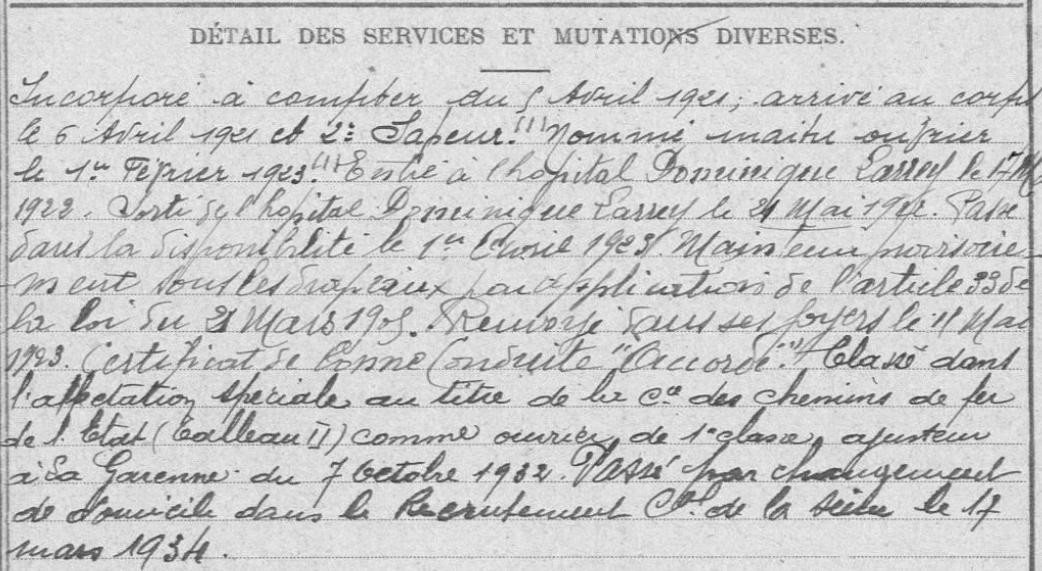 DÉTAIL DES SERVICES ET MUTATIONS DIVERSES.
Incorporé à compter du 5 Avril 1921, arrivé au corps
le 6 Avril 1921 et 2e Sapeur.(1) Nommé maitre ouvrier
le 1er Février 1923.(1) Entré à l'hopital Dominique Larrey le 17 M
1922. Sorti de l'hopital Dominique Larrey le 21 Mai 1922. Passé
dans la disponibilité le 1er Avril 1923. Maintenu provisoire-
-ment sous les drapeaux par application de l'article 33 de
la loi du 21 Mars 1905. Renvoyé dans ses foyers le 11 Mai
1923. Certificat de Bonne Conduite "Accordé".(1) Classé dans
l'affectation spéciale au titre de la Cie des chemins de fer
de l'Etat (Talleau II) comme ouvrier de 1e classe, ajusteur
à La Garenne du 7 Octobre 1932. Passé par changement
de domicile dans le Recrutement Cal de la Seine le 17
mars 1934.